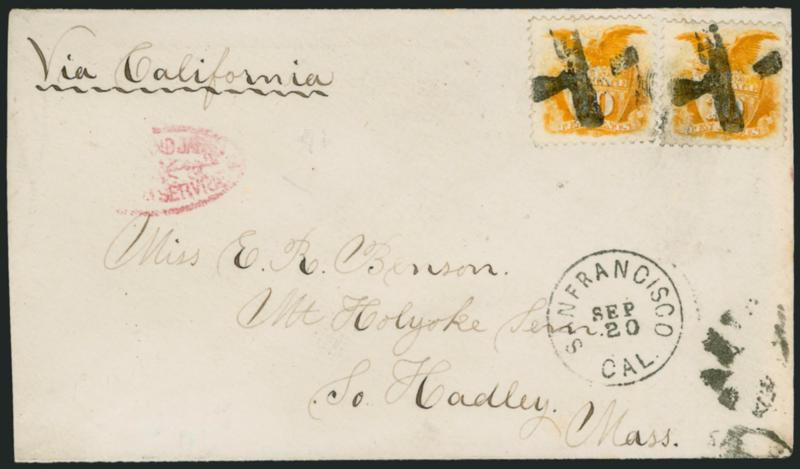 Via California
ND JAPAN
SERVICE
Miss E. R. Benson.
Mt Holyoke Sem.
So. Hadley.
Mass.
SAN FRANCISCO
SEP
20
CAL.